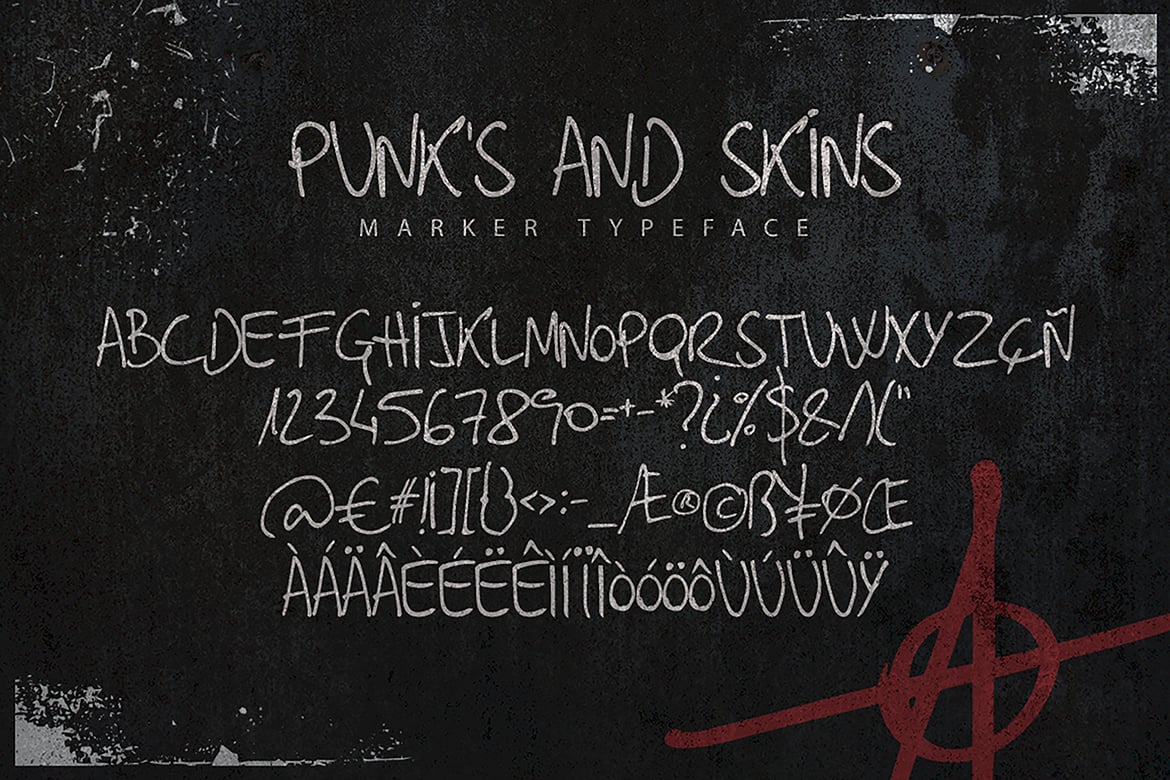 PUNK'S AND SKiNS
MARKER TYPEFACE
ABCDEFGHiJKLMNoPQRSTUVWXYZÇÑ
1234567890=+-*?¿%$&/\("
@€#!¡][{}<>:-_Æ®©ß¥ØŒ
ÀÁÄÂÈÉËÊÌÍÏÎòóöôÙÚÜÛŸ